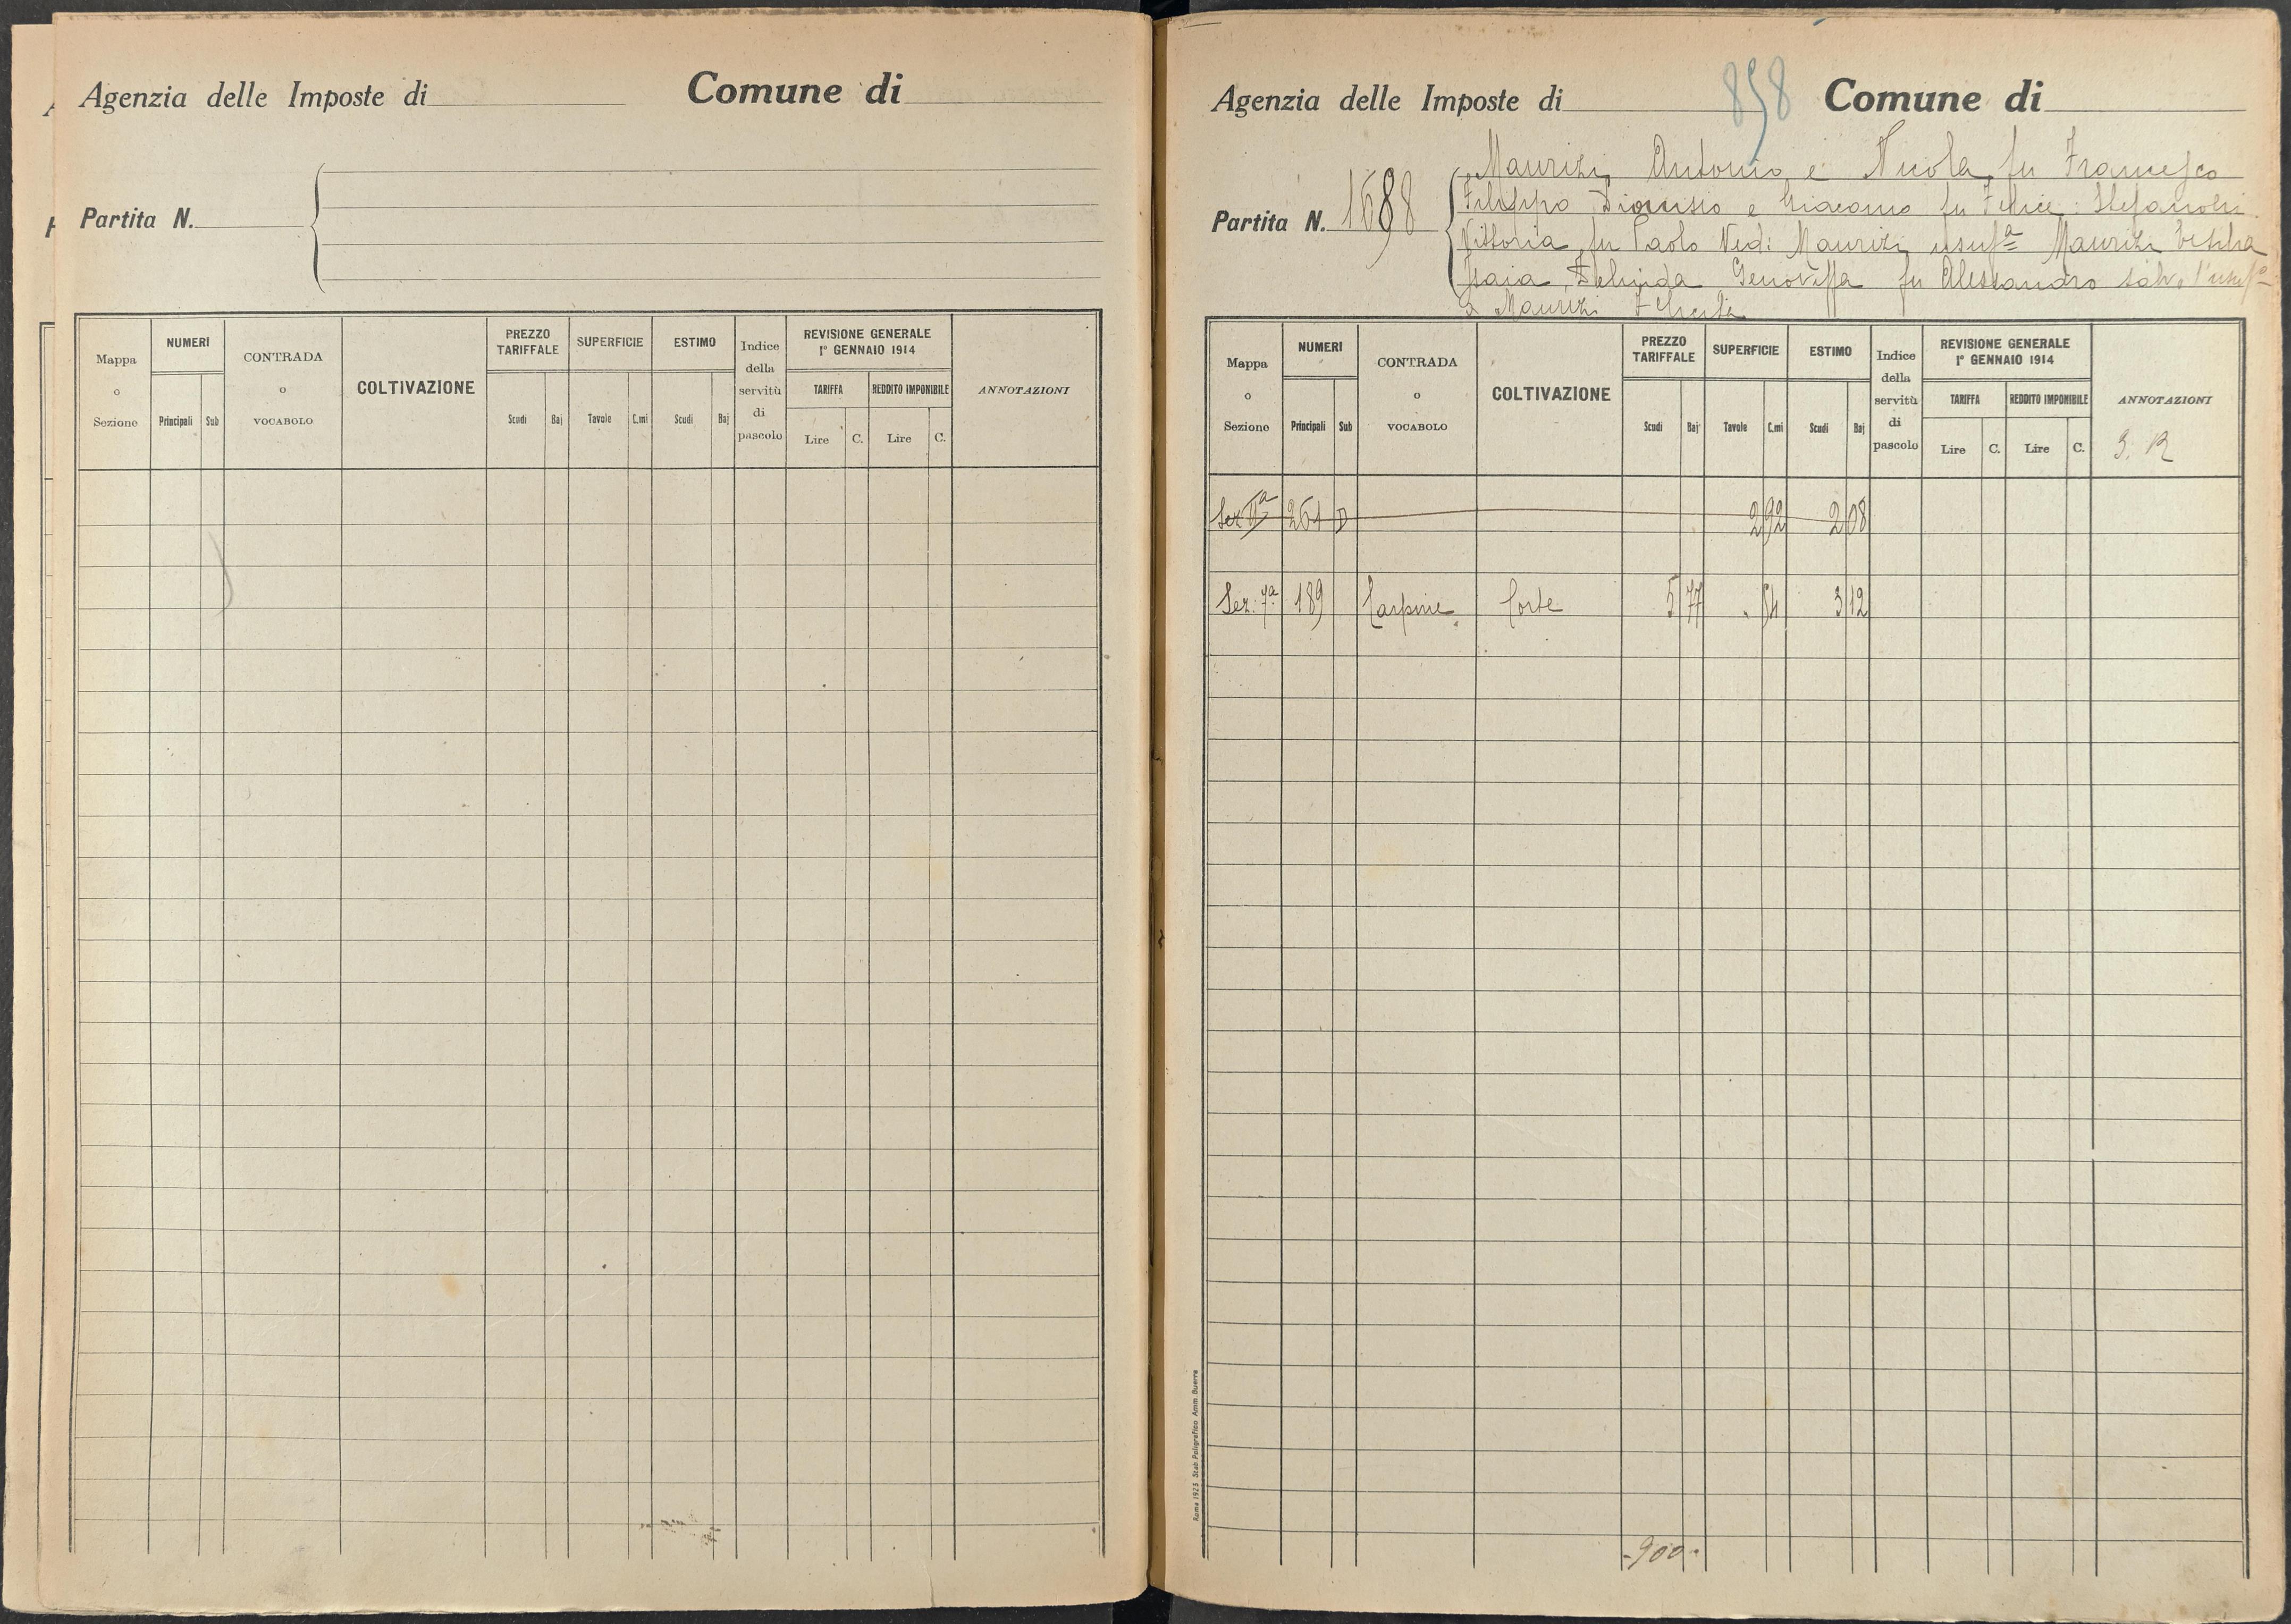 Agenzia delle Imposte di Comune di
Partita N.
Mappa o Sezione NUMERI Principali Sub CONTRADA o VOCABOLO COLTIVAZIONE PREZZO TARIFFALE Scudi Baj SUPERFICIE Tavole C.mi ESTIMO Scudi Baj Indice della servitù di pascolo REVISIONE GENERALE 1° GENNAIO 1914 TARIFFA Lire C. REDDITO IMPONIBILE Lire C. ANNOTAZIONI
858
Agenzia delle Imposte di Comune di
Maurizi Antonio e Nicola fu Francesco
Filippo Dionisio e Giacomo fu Felice: Stefanohi
Partita N. 1688
Vittoria fu Paolo Ved: Maurizi usufª Maurizi
Isaia, Genoveffa fu Alessandro salvo l'usufº
a Maurizi Felicita
Mappa o Sezione NUMERI Principali Sub CONTRADA o VOCABOLO COLTIVAZIONE PREZZO TARIFFALE Scudi Baj SUPERFICIE Tavole C.mi ESTIMO Scudi Baj Indice della servitù di pascolo REVISIONE GENERALE 1° GENNAIO 1914 TARIFFA Lire C. REDDITO IMPONIBILE Lire C. ANNOTAZIONI
3. R
261 D 2 92 2 08
Sez. 7ª 189 Carpine Corte 5 77 . 54 3 12
Roma 1923 Stab. Poligrafico Amm. Guerra
-900-